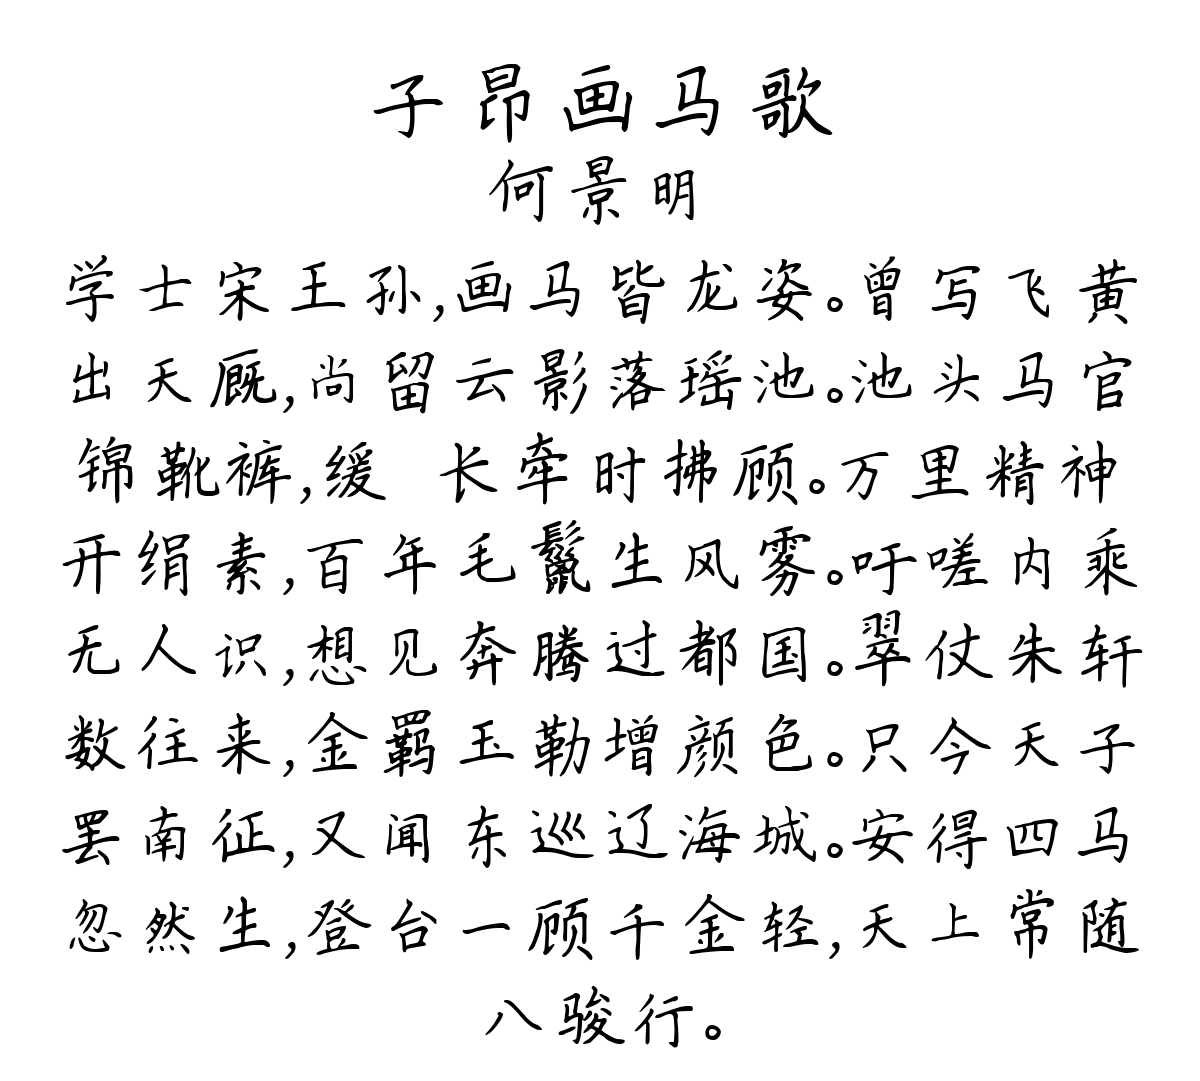 子昂画马歌
何景明
学士宋王孙,画马皆龙姿。曾写飞黄
出天厩,尚留云影落瑶池。池头马官
锦靴裤,缓 长牵时拂顾。万里精神
开绢素,百年毛鬣生风雾。吁嗟内乘
无人识,想见奔腾过都国。翠仗朱轩
数往来,金羁玉勒增颜色。只今天子
罢南征,又闻东巡辽海城。安得四马
忽然生,登台一顾千金轻,天上常随
八骏行。